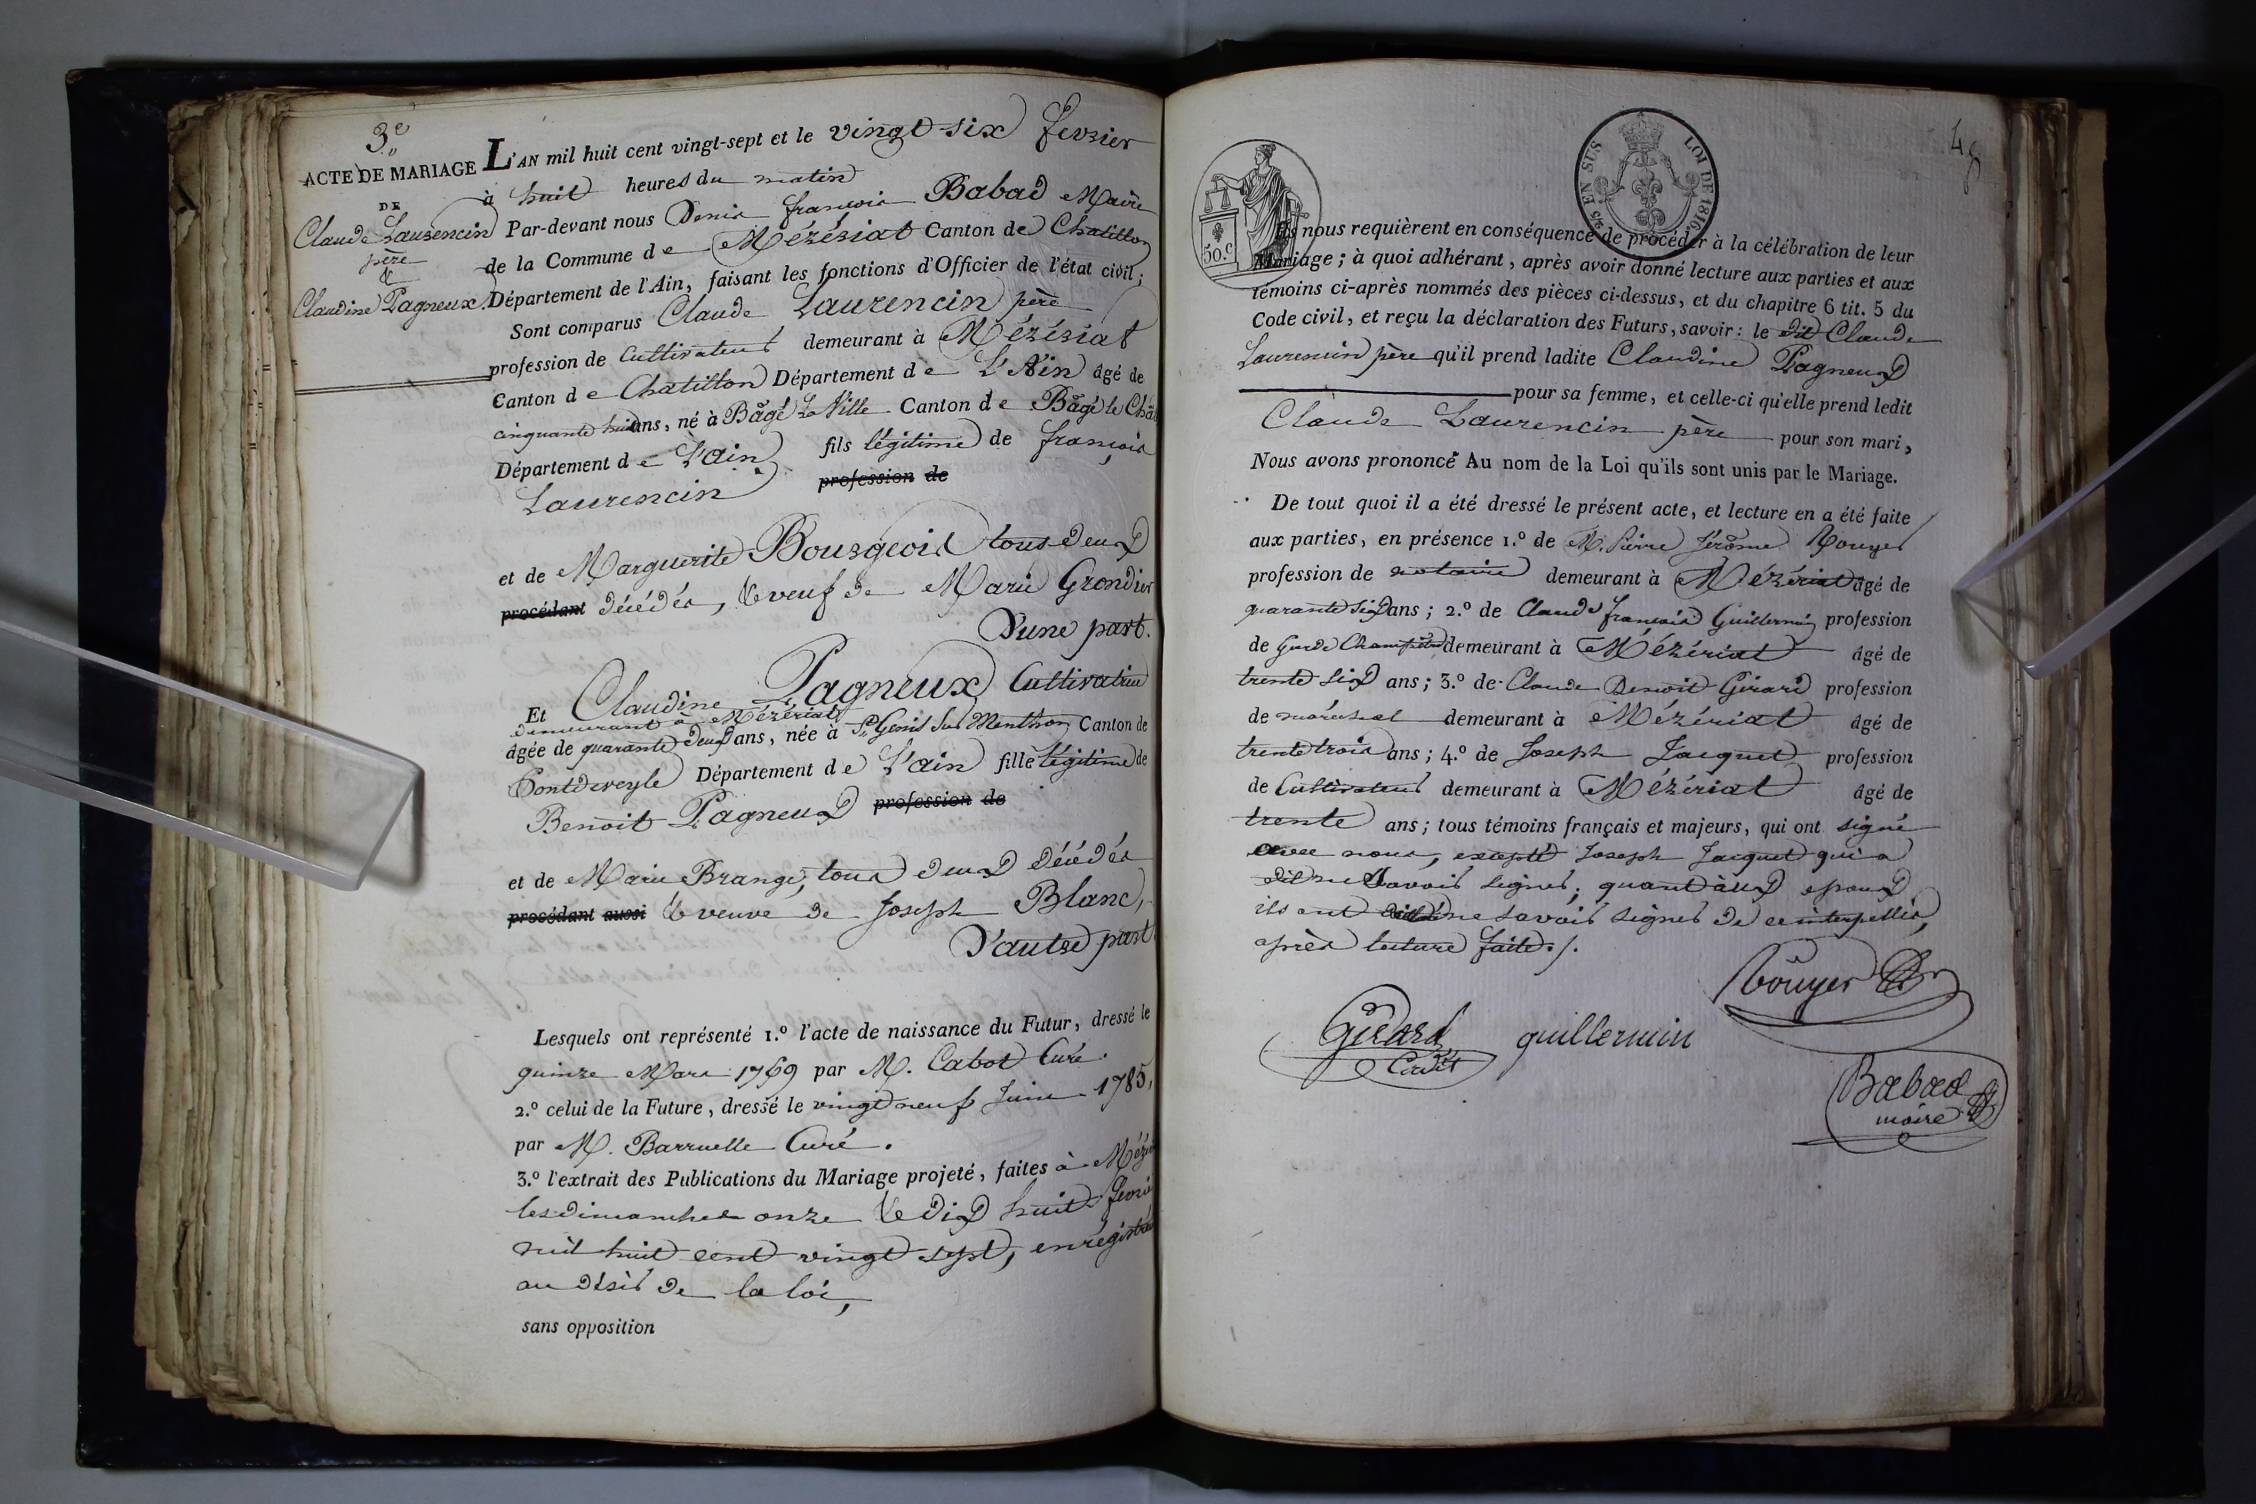 3.e
ACTE DE MARIAGE
DE
Claude Laurencin
père
&
Claudine Pagneux.
L'AN mil huit cent vingt-sept et le vingt-six fevrier
à huit heures du matin
Par-devant nous Denis françois Babad Maire
de la Commune de Mézériat Canton de Chatillon
Département de l'Ain, faisant les fonctions d'Officier de l'état civil;
Sont comparus Claude Laurencin père
profession de Cultivateur demeurant à Mézériat
Canton de Chatillon Département de L'Ain âgé de
cinquante huit ans, né à Bâgé La Ville Canton de Bâgé le Chã
Département de l'ain fils légitime de françois
Laurencin profession de
et de Marguerite Bourgeois tous deux
procédant décédés, & veuf de Marie Grondier
D'une part.
Et Claudine Pagneux Cultivatrice
demeurant à Mézériat
âgée de quarante deux ans, née à St Genis sur Menthon Canton de
Pontdeveyle Département de l'ain fille légitime de
Benoit Pagneux profession de
et de Marie Brange, tous deux décédés
procédant aussi & veuve de Joseph Blanc,
D'autre part
Lesquels ont représenté 1.º l'acte de naissance du Futur, dressé le
quinze Mars 1769 par M. Cabot Curé.
2.º celui de la Future, dressé le vingt neuf Juin 1785,
par M. Barruelle Curé.
3.º l'extrait des Publications du Mariage projeté, faites à Mézé
les dimanches onze & dix huit fevrie
mil huit cent vingt sept, enrégistrées
au désir de la loi,
sans opposition
48
95 EN SUS LOI DE 1816
50.c
Ils nous requièrent en conséquence de procéder à la célébration de leur
Mariage; à quoi adhérant, après avoir donné lecture aux parties et aux
témoins ci-après nommés des pièces ci-dessus, et du chapitre 6 tit. 5 du
Code civil, et reçu la déclaration des Futurs, savoir: le dit Claude
Laurencin père qu'il prend ladite Claudine Pagneux
pour sa femme, et celle-ci qu'elle prend ledit
Claude Laurencin père pour son mari,
Nous avons prononcé Au nom de la Loi qu'ils sont unis par le Mariage.
De tout quoi il a été dressé le présent acte, et lecture en a été faite
aux parties, en présence 1.º de M. Pierre Jérôme Rouyer
profession de notaire demeurant à Mézériat âgé de
quarante six ans; 2.º de Claude françois Guillermin profession
de Garde Champêtre demeurant à Mézériat âgé de
trente six ans; 3.º de Claude Benoit Girard profession
de maréchal demeurant à Mézériat âgé de
trente trois ans; 4.º de Joseph Jacquet profession
de Cultivateur demeurant à Mézériat âgé de
trente ans; tous témoins français et majeurs, qui ont signé
avec nous, excepté Joseph Jacquet qui a
dit ne savoir signer; quant aux epoux
ils ont ne savoir signer de ce interpellés,
après lecture faite./.
Rouyer
Girard
Cadet
guillermin
Babad
maire